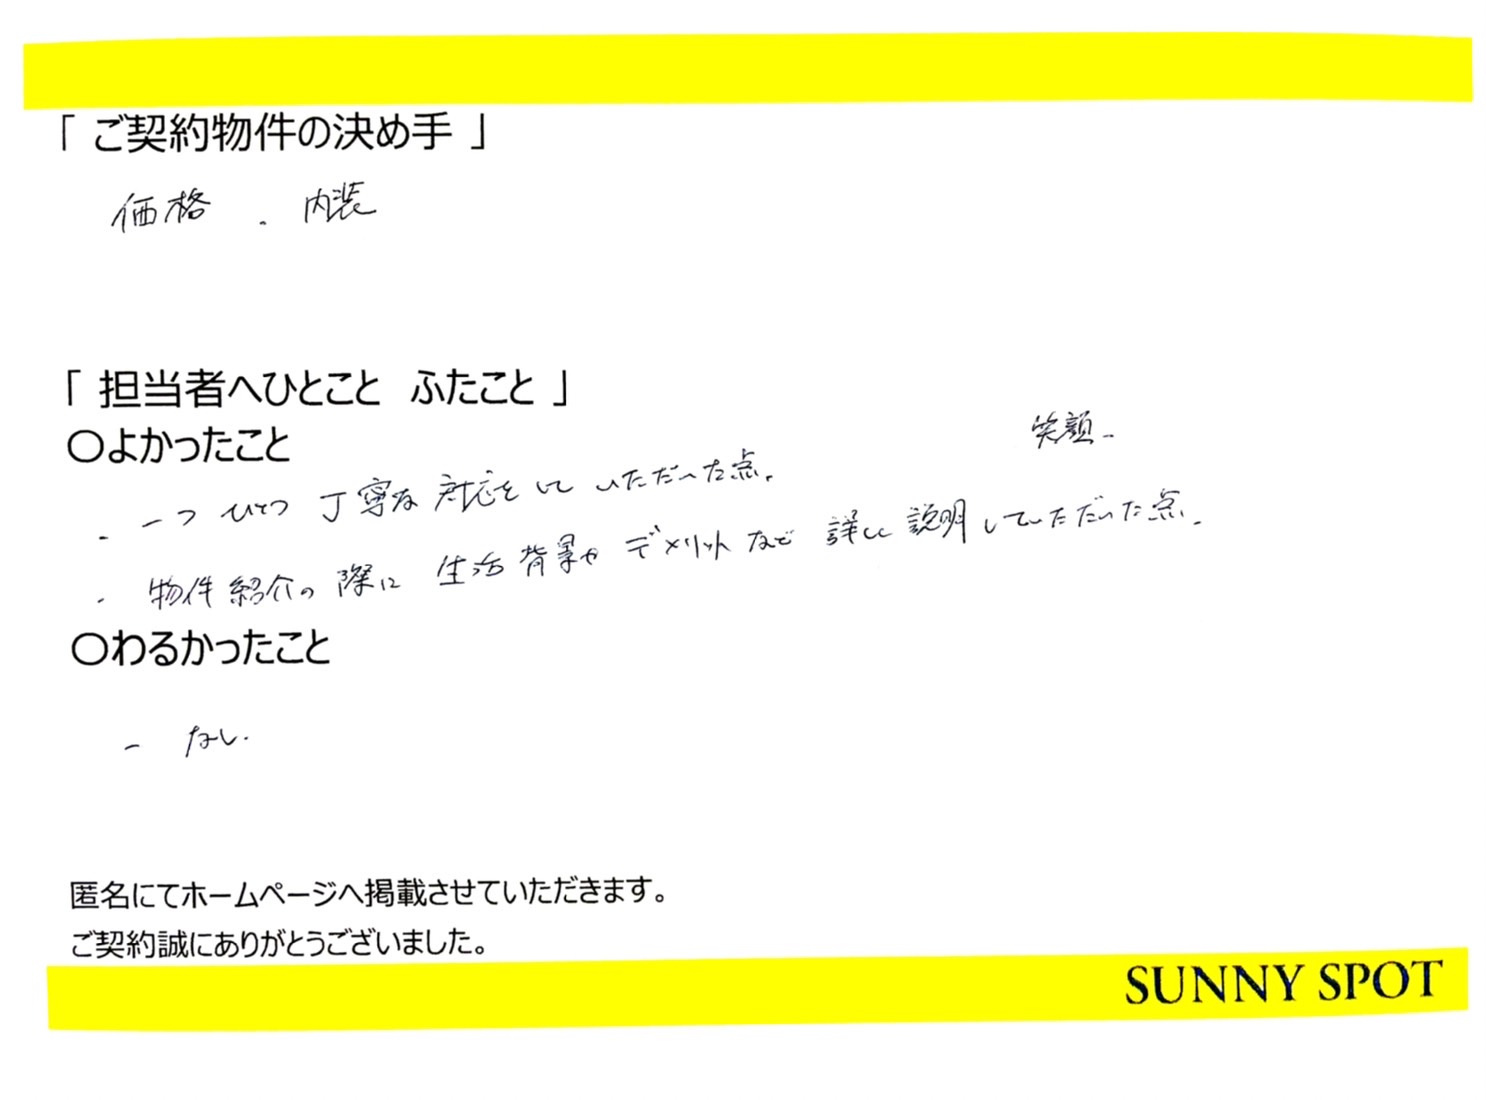 「 ご契約物件の決め手 」
価格 . 内装
「 担当者へひとこと ふたこと 」
〇よかったこと
笑顔.
. 一つひとつ 丁寧な 対応を して いただいた点.
. 物件紹介の際に 生活背景や デメリットなど 詳しく説明していただいた点.
〇わるかったこと
- なし.
匿名にてホームページへ掲載させていただきます。
ご契約誠にありがとうございました。
SUNNY SPOT